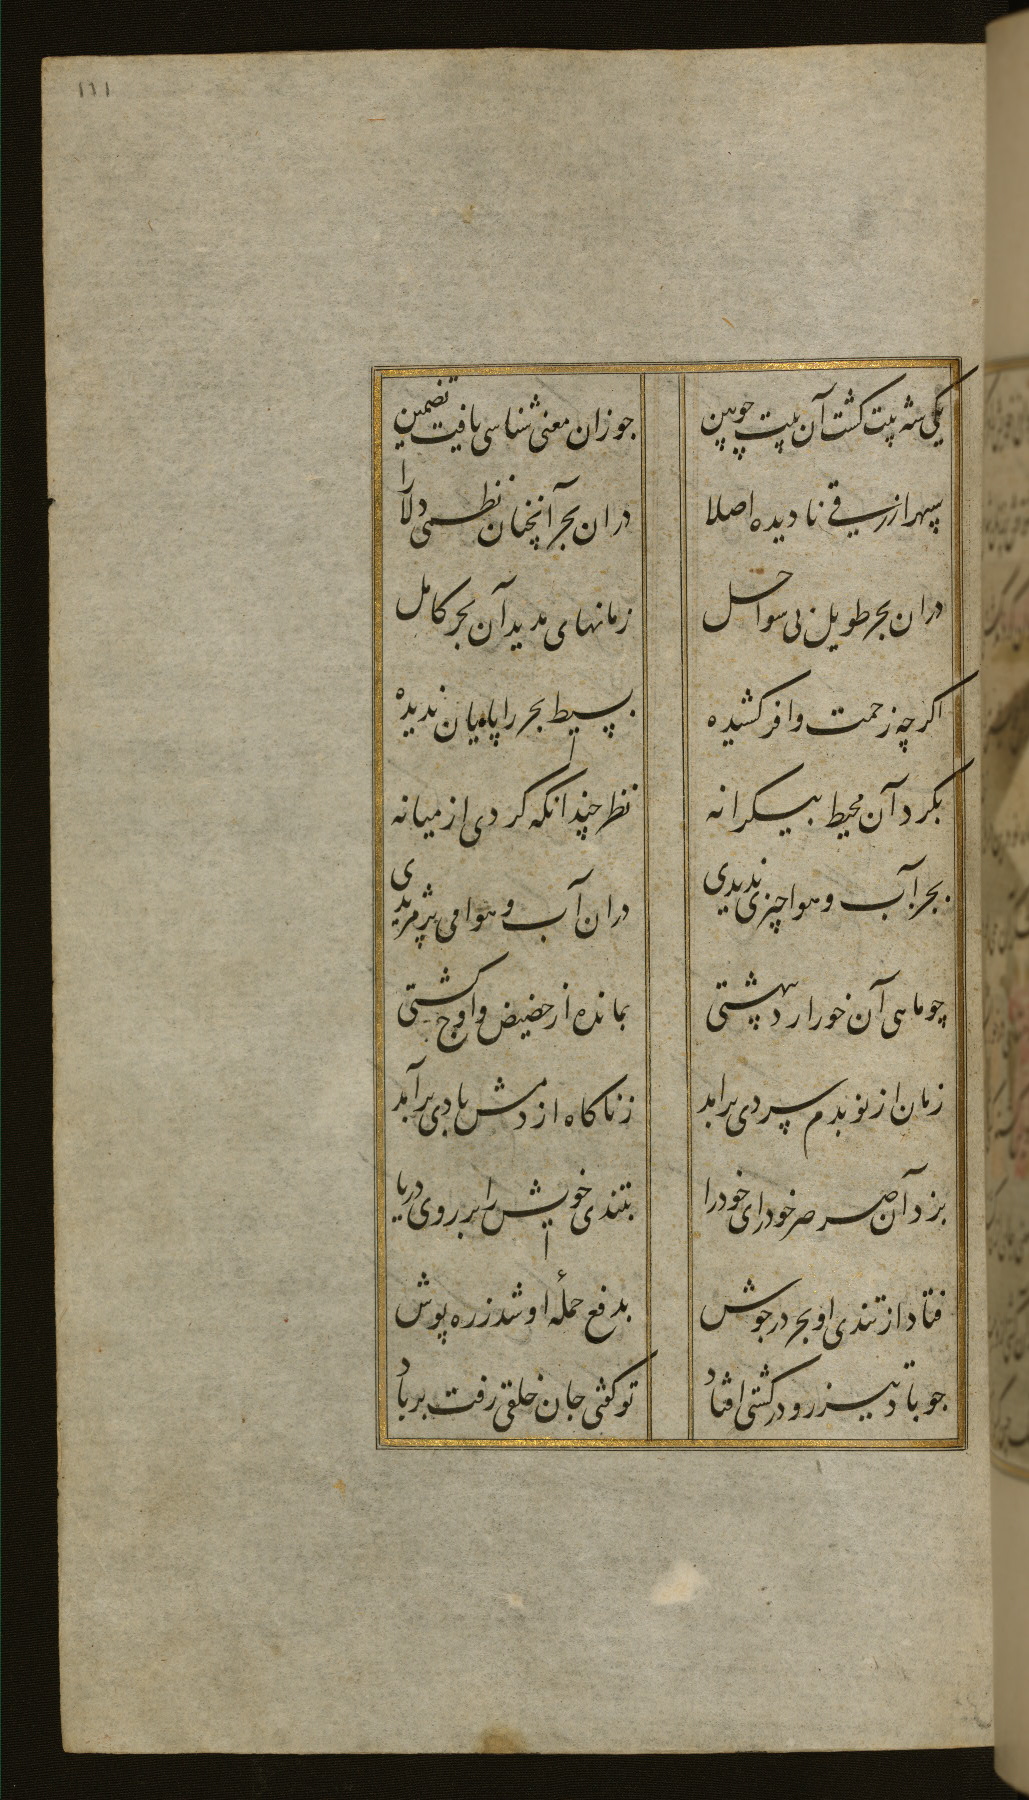 ١٦١
یکی شه بیت کشت آن بیت چوبین جو زان معنی شناسی یافت تضمین
سپهر ازرقی نادیده اصلا دران بحر آنچنان نظمی دلارا
دران بحر طویل بی سواحل زمانهای مدید آن بحر کامل
اکرچه زحمت وافر کشیده بسیط بحر را پایان ندیده
بکرد آن محیط بیکرانه نظر چندانکه کردی از میانه
بجز آب و هوا چیزی ندیدی دران آب و هوا می پژمریدی
چو ماهی آن خور اردیبهشتی بمانده از حضیض و اوج کشتی
زمان از نو بدم سردی برامد ز ناکاه از دمش بادی برآمد
بزد آن صرصر خودرای خودرا بتندی خویش را بر روی دریا
فتاد از تندی او بحر در جوش بدفع حملهٔ او شد زره پوش
جو باد تیزرو در کشتی افتاد تو کفتی جان خلقی رفت بر باد